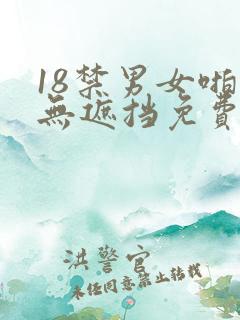 18禁男女啪
無遮挡免费
洪警官
未经同意禁止转载